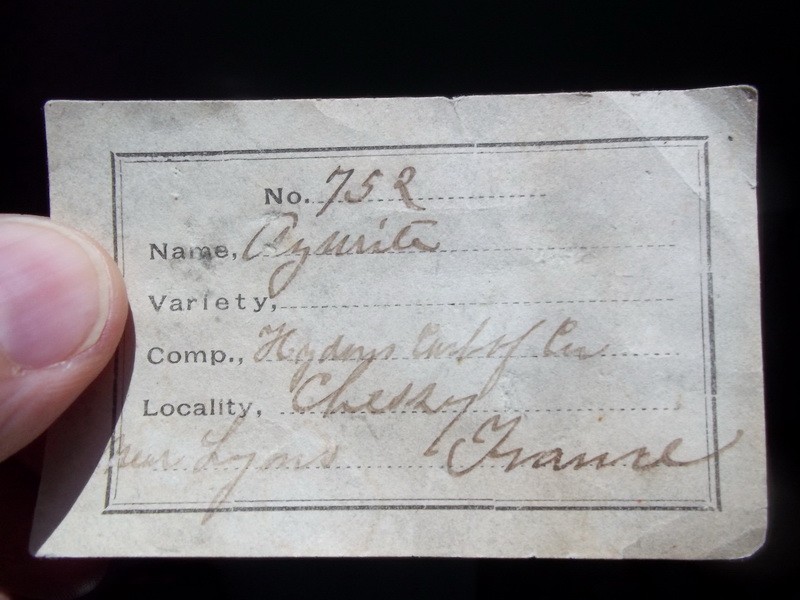 No. 752
Name, Azurite
Variety,
Comp., Hydous Carb of Cu
Locality, Chessy
near Lyons France